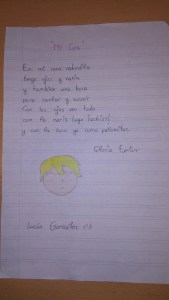 "Mi cara"
En mi cara redondita
tengo ojos y nariz
y también una boca
para cantar y reir.
Con los ojos veo todo
con la nariz hago
y con la boca yo como palomitas.
Gloria Fuertes
Lucía